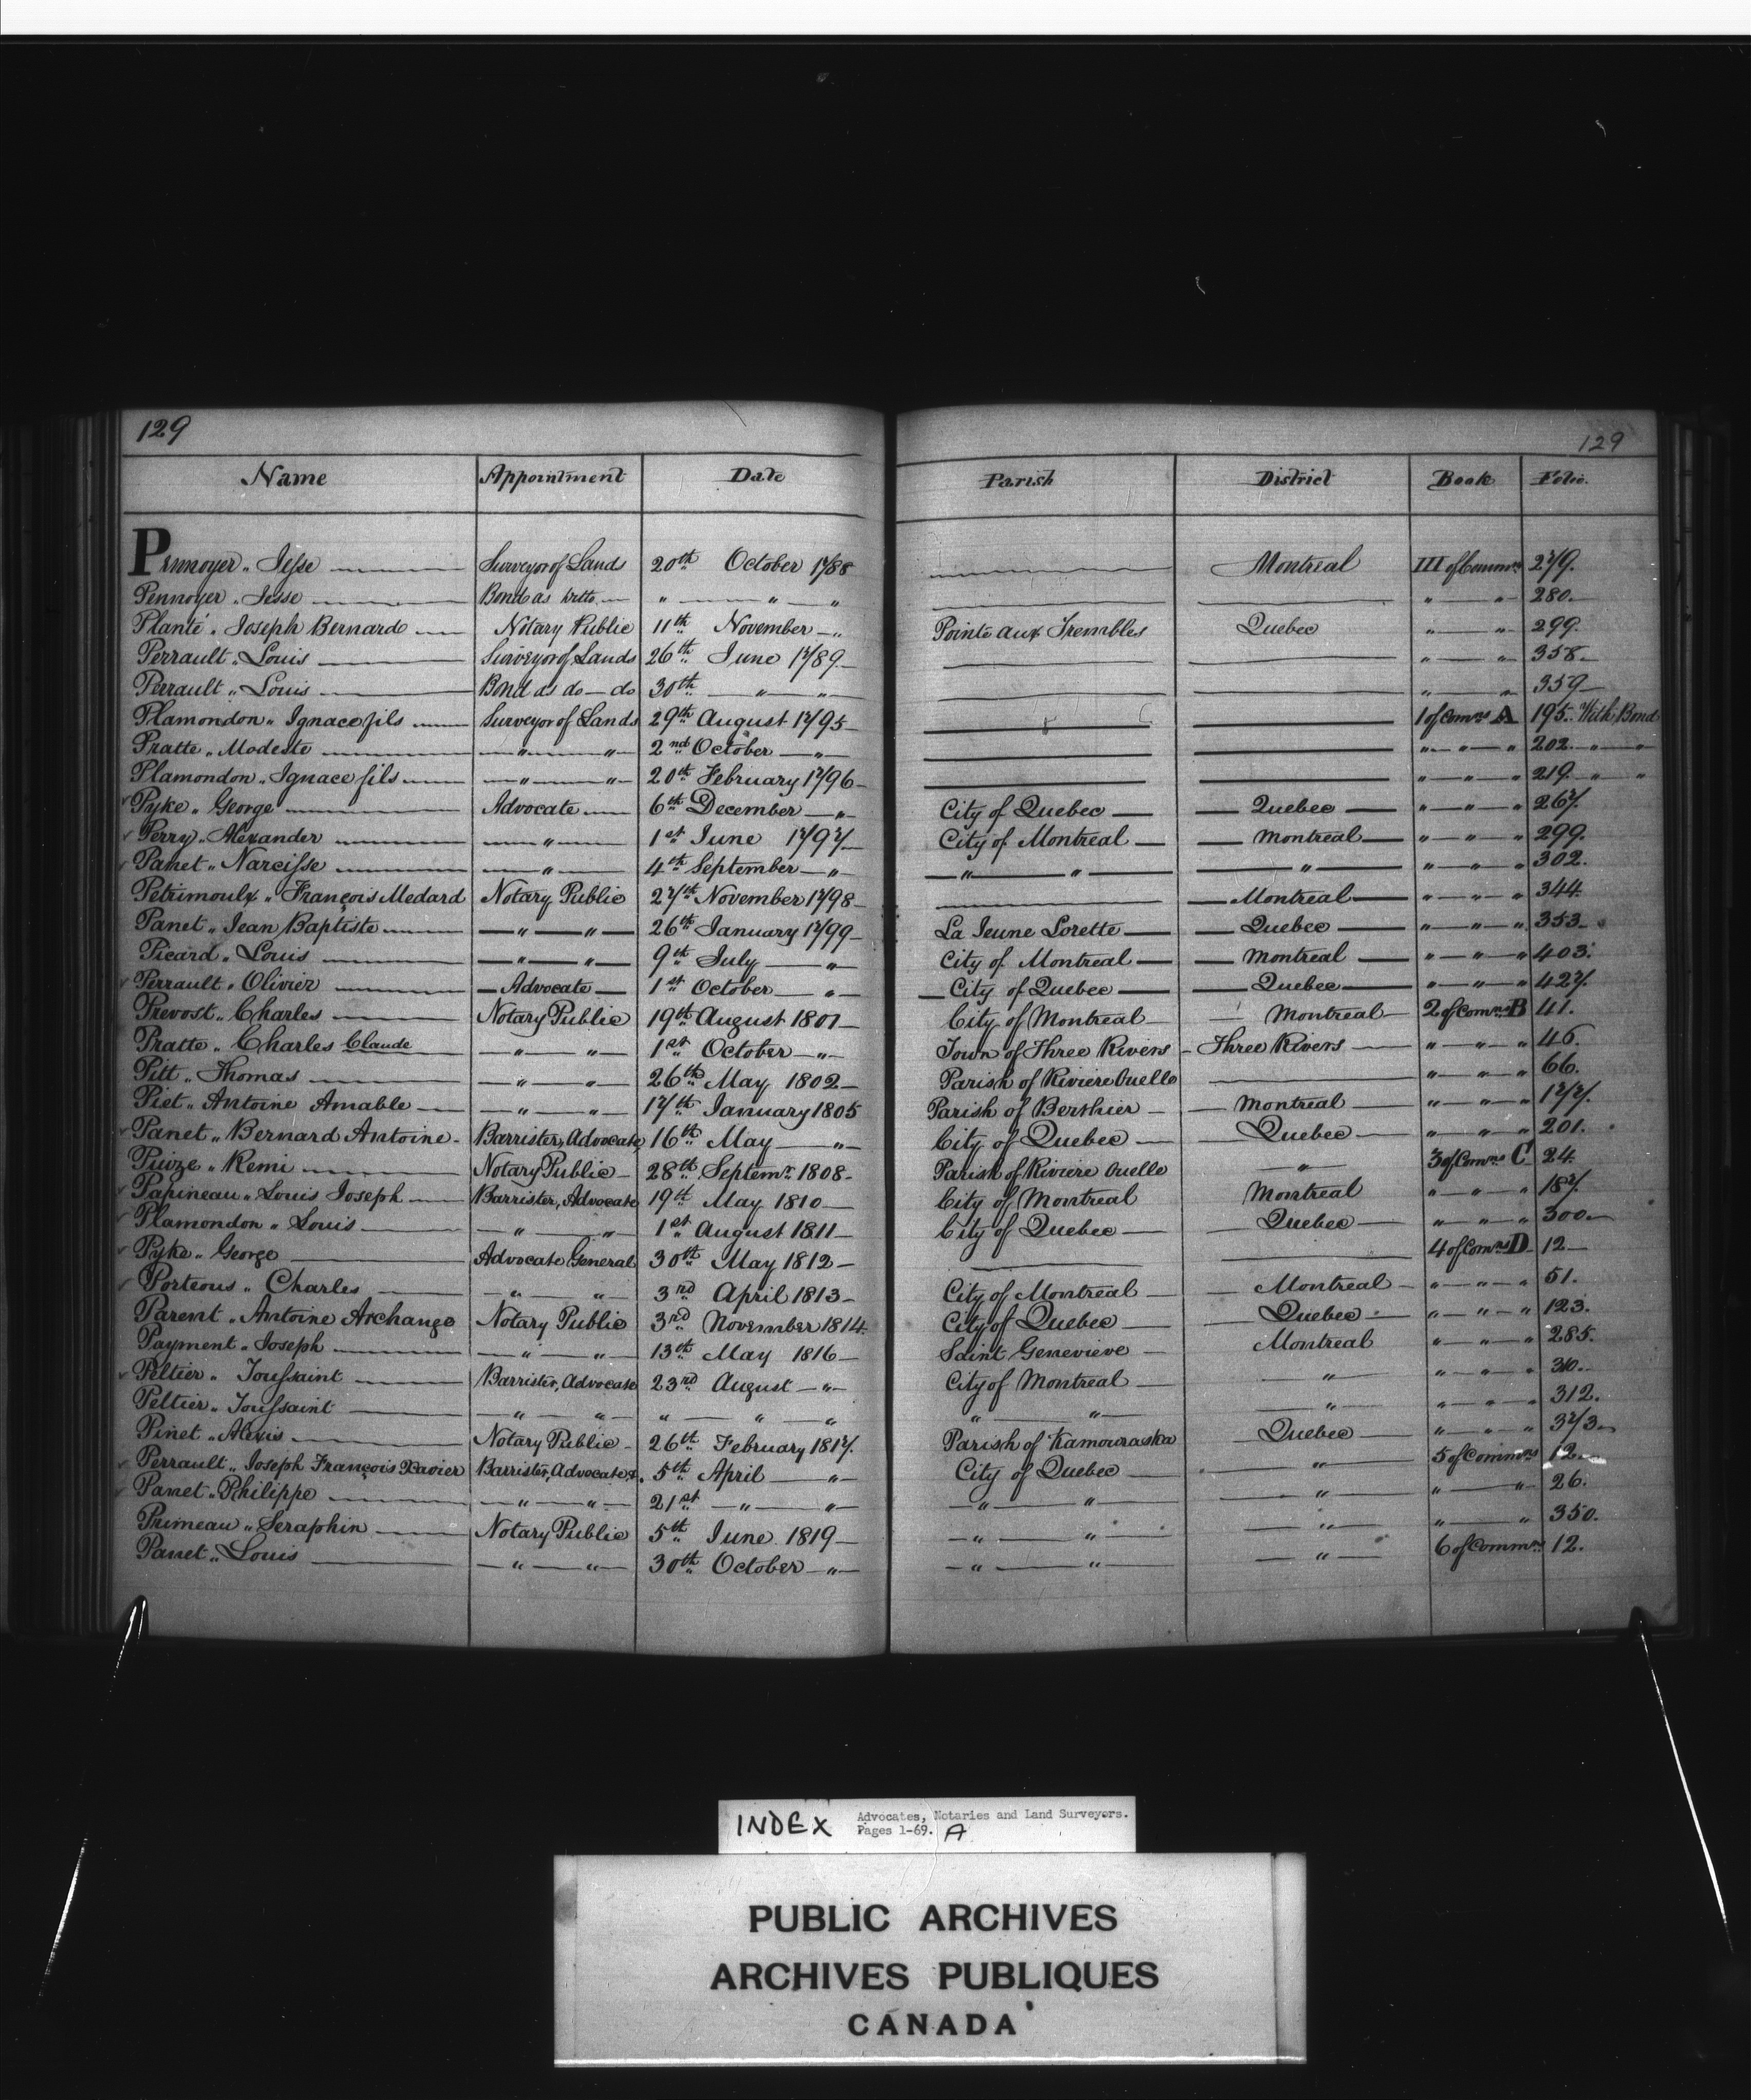 129 129
Name Appointment Date Parish District Book Folio.
Pennoyer „ Jesse Surveyor of Lands 20th October 1788 Montreal III of Commns 279.
Pennoyer „ Jesse Bond as ditto „ „ „ „ „ 280.
Planté „ Joseph Bernard Notary Public 11th November „ Pointe aux Trembles Quebec „ „ 299.
Perrault „ Louis Surveyor of Lands 26th June 1789 „ „ 358.
Perrault „ Louis Bond as do do 30th „ „ „ „ 359
Plamondon „ Ignace fils Surveyor of Lands 29th August 1795 1 of Comns A 195. With Bond
Pratte „ Modeste „ „ 2nd October „ „ „ „ 202. „ „
Plamondon „ Ignace fils „ „ 20th February 1796 „ „ „ 219. „ „
Pyke „ George Advocate 6th December „ City of Quebec Quebec „ „ „ 267.
Perry „ Alexander „ 1st June 1797 City of Montreal Montreal „ „ „ 299.
Panet „ Narcisse „ 4th September „ „ „ „ „ „ „ 302.
Petrimoulx „ François Medard Notary Public 27th November 1798 Montreal „ „ „ 344.
Panet „ Jean Baptiste „ „ 26th January 1799 La Jeune Lorette Quebec „ „ „ 353
Picard „ Louis „ „ 9th July „ City of Montreal Montreal „ „ „ 403.
Perrault „ Olivier Advocate 1st October „ City of Quebec Quebec „ „ „ 427.
Prevost „ Charles Notary Public 19th August 1801 City of Montreal Montreal 2 of Comns B 41.
Pratte „ Charles Claude „ „ 1st October „ Town of Three Rivers Three Rivers „ „ „ 46.
Pitt „ Thomas „ „ 26th May 1802 Parish of Riviere Ouelle „ „ „ 66.
Piet „ Antoine Amable „ „ 17th January 1805 Parish of Berthier Montreal „ „ „ 177.
Panet „ Bernard Antoine Barrister, Advocate, 16th May „ City of Quebec Quebec „ „ „ 201.
Piuze „ Remi Notary Public 28th Septemr 1808 Parish of Riviere Ouelle „ 3 of Comns C 24.
Papineau „ Louis Joseph Barrister, Advocate 19th May 1810 City of Montreal Montreal „ „ „ 187.
Plamondon „ Louis „ „ 1st August 1811 City of Quebec Quebec „ „ „ 300.
Pyke „ George Advocate General 30th May 1812 4 of Comns D 12
Porteous „ Charles „ „ 3rd April 1813 City of Montreal Montreal „ „ „ 51.
Parent „ Antoine Archange Notary Public 3rd November 1814. City of Quebec Quebec „ „ „ 123.
Payment „ Joseph „ „ 13th May 1816 Saint Genevieve Montreal „ „ „ 285.
Peltier „ Toussaint Barrister, Advocate 23rd August „ City of Montreal „ „ „ „ 310.
Peltier „ Toussaint „ „ „ „ „ „ „ „ „ „ „ 312.
Pinet „ Alexis Notary Public 26th February 1817. Parish of Kamouraska Quebec „ „ „ 373
Perrault „ Joseph François Xavier Barrister, Advocate &. 5th April „ City of Quebec „ 5 of Commns 12.
Panet „ Philippe „ „ 21st „ „ „ „ „ „ „ 26.
Primeau „ Seraphin Notary Public 5th June 1819 „ „ „ „ „ 350.
Panet „ Louis „ „ 30th October „ „ „ „ 6 of Commns 12.
INDEX Advocates, Notaries and Land Surveyors.
Pages 1-69. A
PUBLIC ARCHIVES
ARCHIVES PUBLIQUES
CANADA